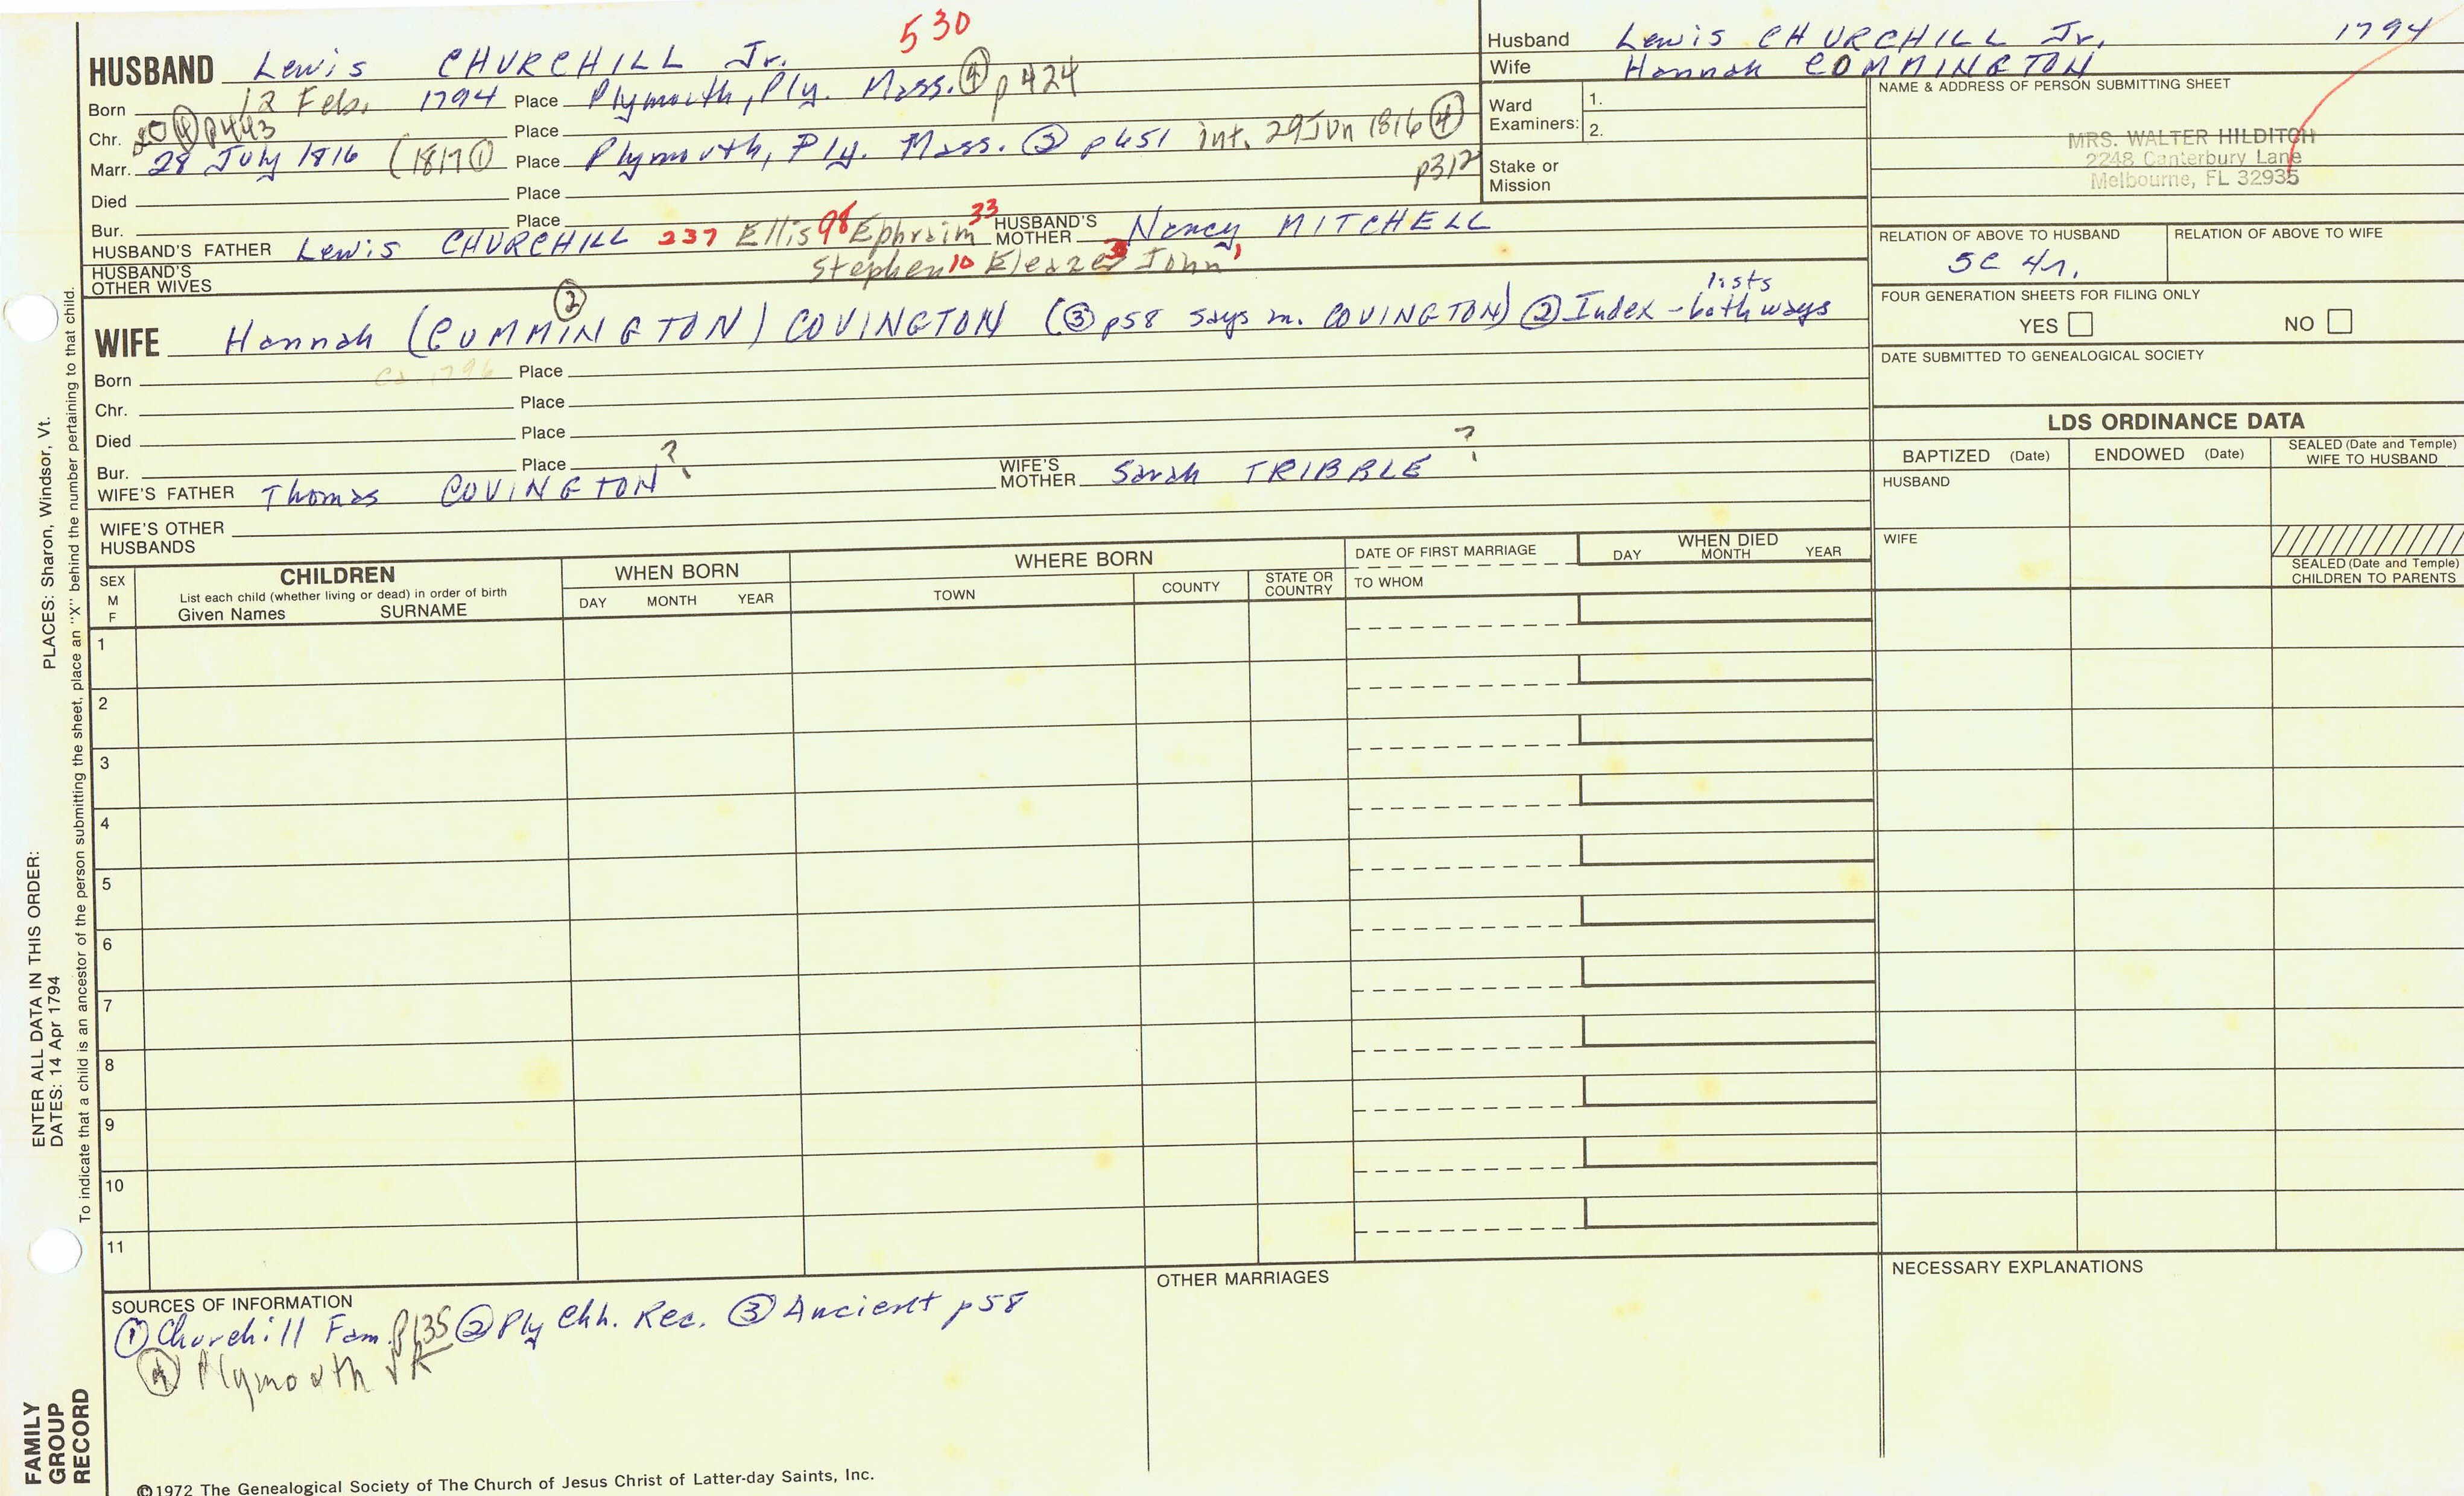 530
HUSBAND Lewis CHURCHILL Jr.
Born 12 Feb. 1794 Place Plymouth, Ply. Mass. ④ p424
Chr. 20 ④ p443 Place
Marr. 28 July 1816 (1817 ① Place Plymouth, Ply. Mass. ② p651 int. 29 Jun 1816 ④ p312
Died Place
Bur. Place
HUSBAND'S FATHER Lewis CHURCHILL 237 Ellis 98 Ephraim 33 HUSBAND'S MOTHER Nancy MITCHELL
Stephen 10 Eleazer 3 John 1
HUSBAND'S OTHER WIVES
WIFE Hannah (CUMMINGTON) ② COVINGTON (③ p58 says m. COVINGTON) ② Index - lists both ways
Born Ca 1796 Place
Chr. Place
Died Place
Bur. Place
WIFE'S FATHER Thomas COVINGTON ? WIFE'S MOTHER Sarah TRIBBLE ?
WIFE'S OTHER HUSBANDS
Husband Lewis CHURCHILL Jr. 1794
Wife Hannah COMMINGTON
Ward Examiners: 1.
2.
Stake or Mission
NAME & ADDRESS OF PERSON SUBMITTING SHEET
MRS. WALTER HILDITCH
2248 Canterbury Lane
Melbourne, FL 32935
RELATION OF ABOVE TO HUSBAND RELATION OF ABOVE TO WIFE
5C 4r.
FOUR GENERATION SHEETS FOR FILING ONLY
YES NO
DATE SUBMITTED TO GENEALOGICAL SOCIETY
LDS ORDINANCE DATA
BAPTIZED (Date) ENDOWED (Date) SEALED (Date and Temple) WIFE TO HUSBAND
HUSBAND
WIFE
SEALED (Date and Temple) CHILDREN TO PARENTS
SEX M F
CHILDREN
List each child (whether living or dead) in order of birth
Given Names SURNAME
WHEN BORN
DAY MONTH YEAR
WHERE BORN
TOWN COUNTY STATE OR COUNTRY
DATE OF FIRST MARRIAGE
TO WHOM
WHEN DIED
DAY MONTH YEAR
1
2
3
4
5
6
7
8
9
10
11
SOURCES OF INFORMATION
① Churchill Fam. p135 ② Ply Chh. Rec. ③ Ancient p58
④ Plymouth VR
OTHER MARRIAGES
NECESSARY EXPLANATIONS
©1972 The Genealogical Society of The Church of Jesus Christ of Latter-day Saints, Inc.
FAMILY GROUP RECORD
ENTER ALL DATA IN THIS ORDER:
DATES: 14 Apr 1794
PLACES: Sharon, Windsor, Vt.
To indicate that a child is an ancestor of the person submitting the sheet, place an "X" behind the number pertaining to that child.